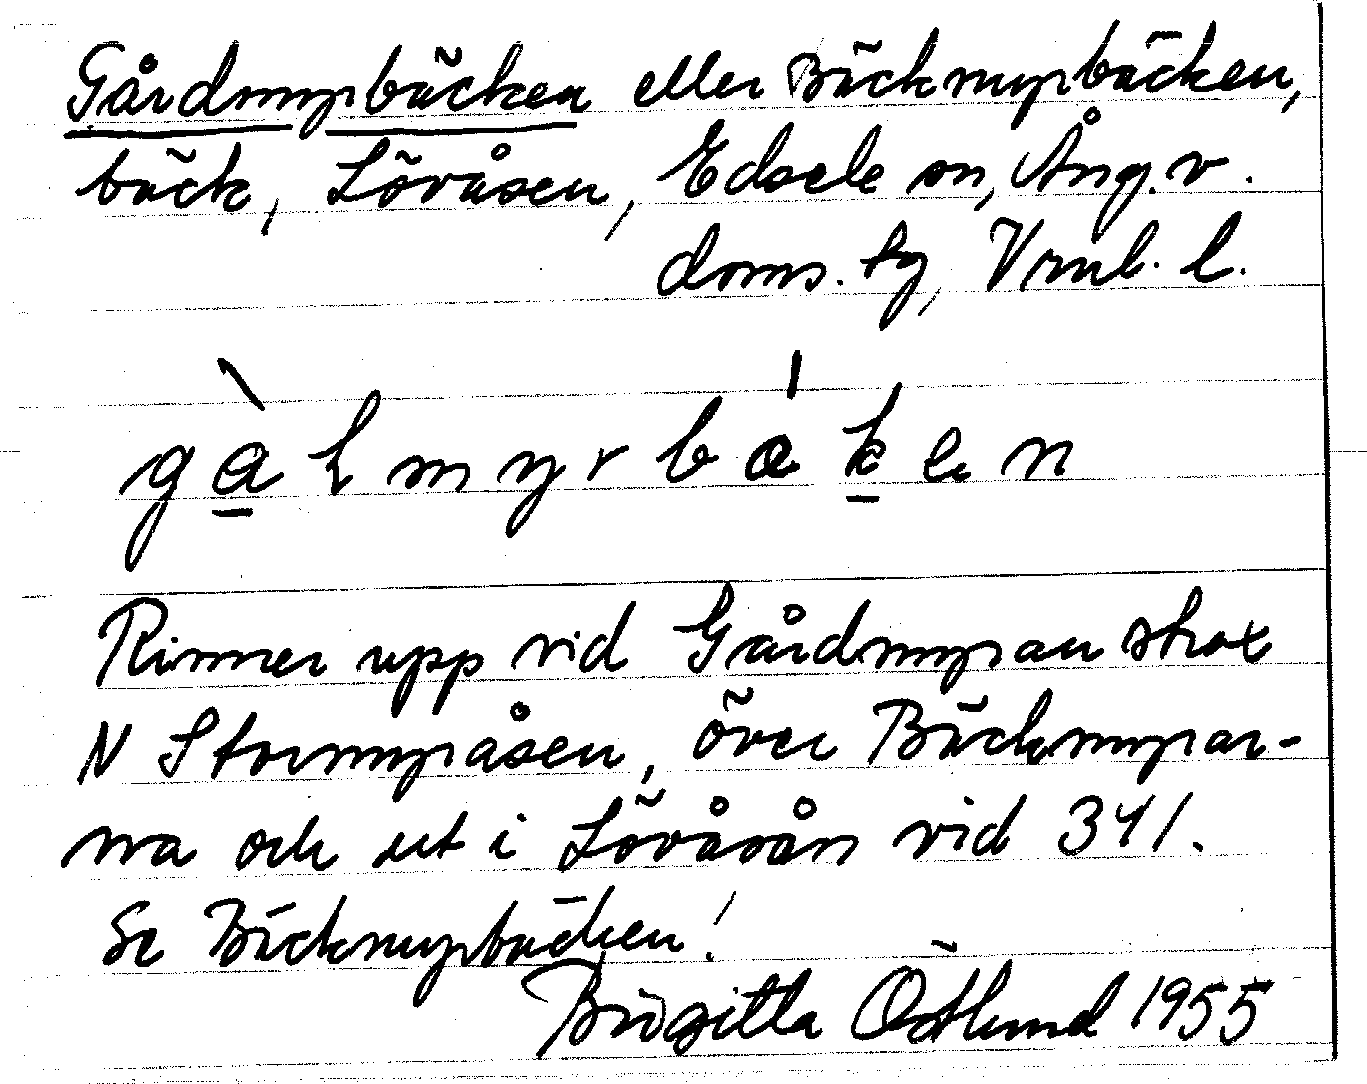 Gårdmyrbäcken eller Bäckmyrbäcken,
bäck, Lövåsen, Edsele sn, Ång. v.
doms. tg, Vrnl. l.
gàlmyrbáken
Rinner upp vid Gårdmyran strax
N Stormyråsen, över Bäckmyrar-
na och ut i Lövåsån vid 341.
Se Bäckmyrbäcken!
Birgitta Östlund 1955